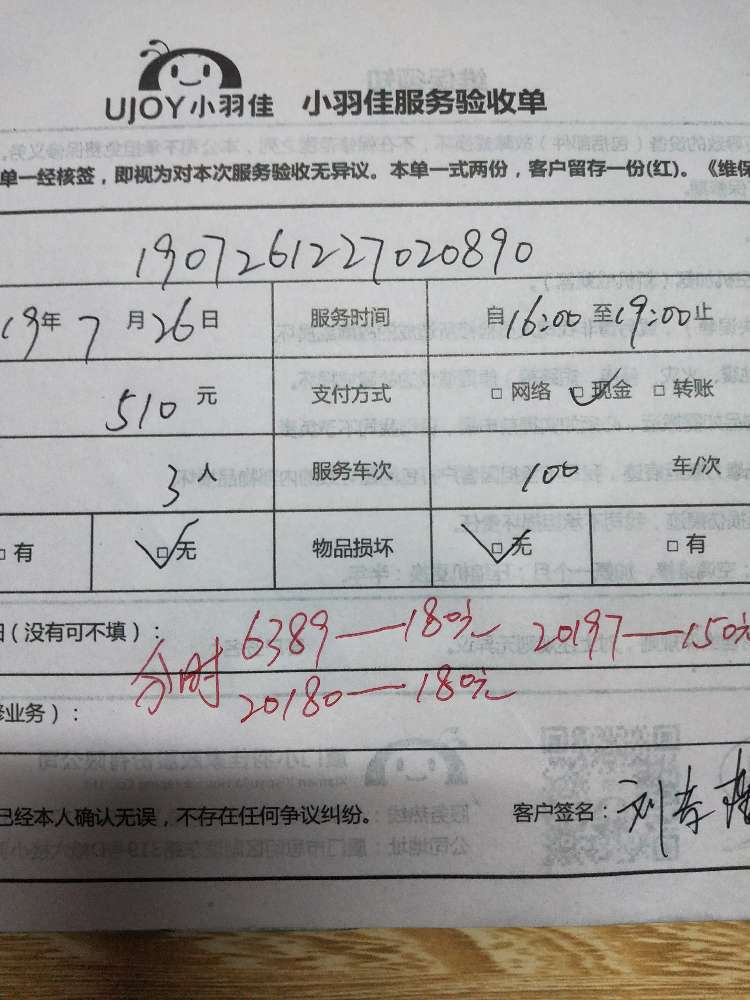 UJOY小羽佳 小羽佳服务验收单
单一经核签，即视为对本次服务验收无异议。本单一式两份，客户留存一份(红)。《维保
1907261227020890
19年7月26日 服务时间 自16:00至19:00止
510元 支付方式 □ 网络 □ 现金 □ 转账
3人 服务车次 100 车/次
□ 有 □ 无 物品损坏 □ 无 □ 有
(没有可不填)：
分时 6389—180元 20197—150元
20180—180元
修业务)：
已经本人确认无误，不存在任何争议纠纷。 客户签名：刘